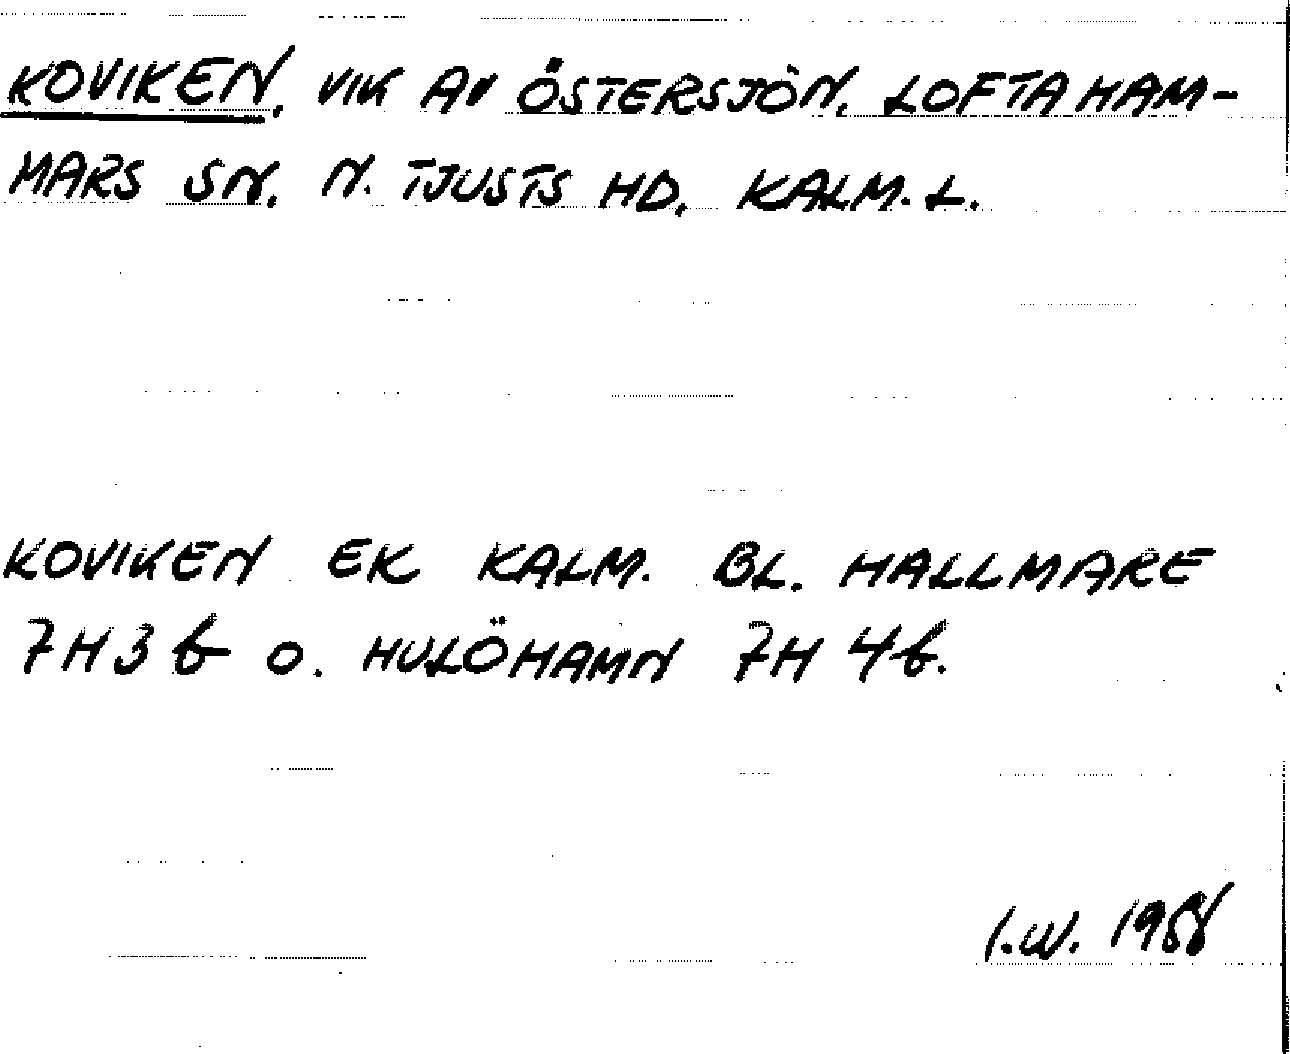 KOVIKEN, VIK AV ÖSTERSJÖN, LOFTAHAM-
MARS SN, N. TJUSTS HD, KALM. L.
KOVIKEN EK KALM. BL. HALLMARE
7H3b O. HULÖHAMN 7H 4b.
I.W. 1988